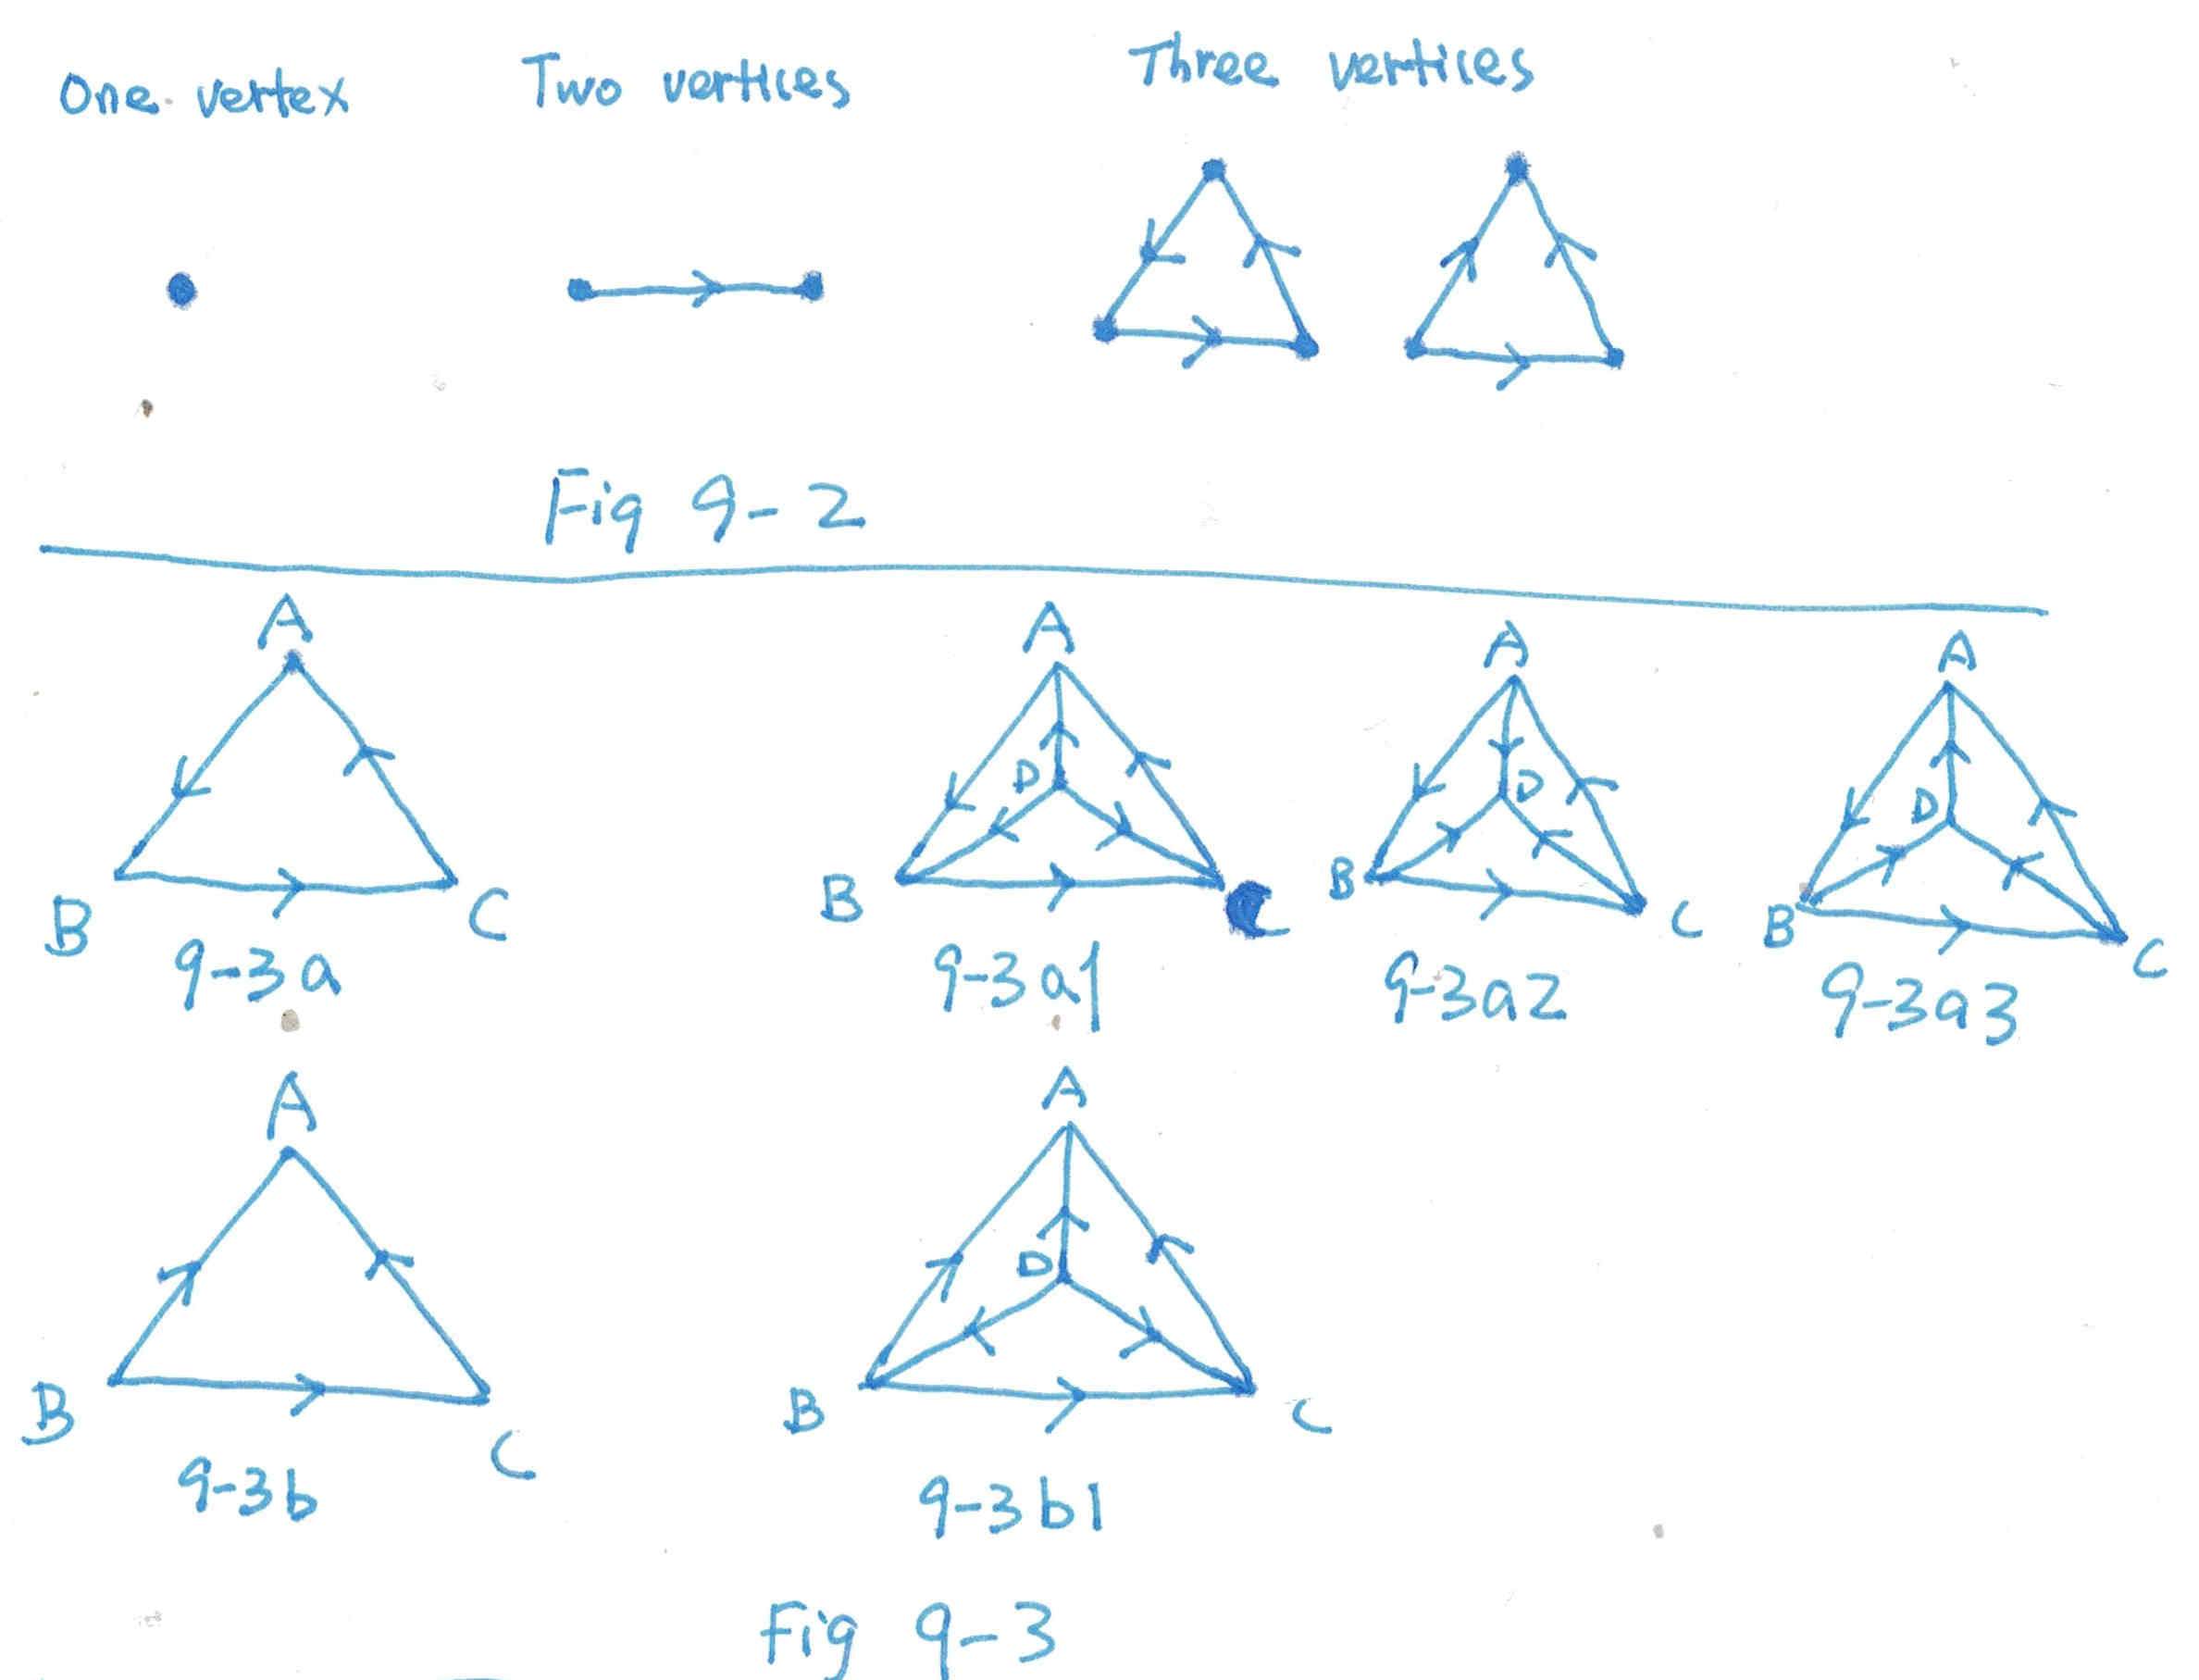 One vertex
Two vertices
Three vertices
Fig 9-2
A
B
C
9-3a
A
D
B
C
9-3a1
A
D
B
C
9-3a2
A
D
B
C
9-3a3
A
B
C
9-3b
A
D
B
C
9-3b1
Fig 9-3